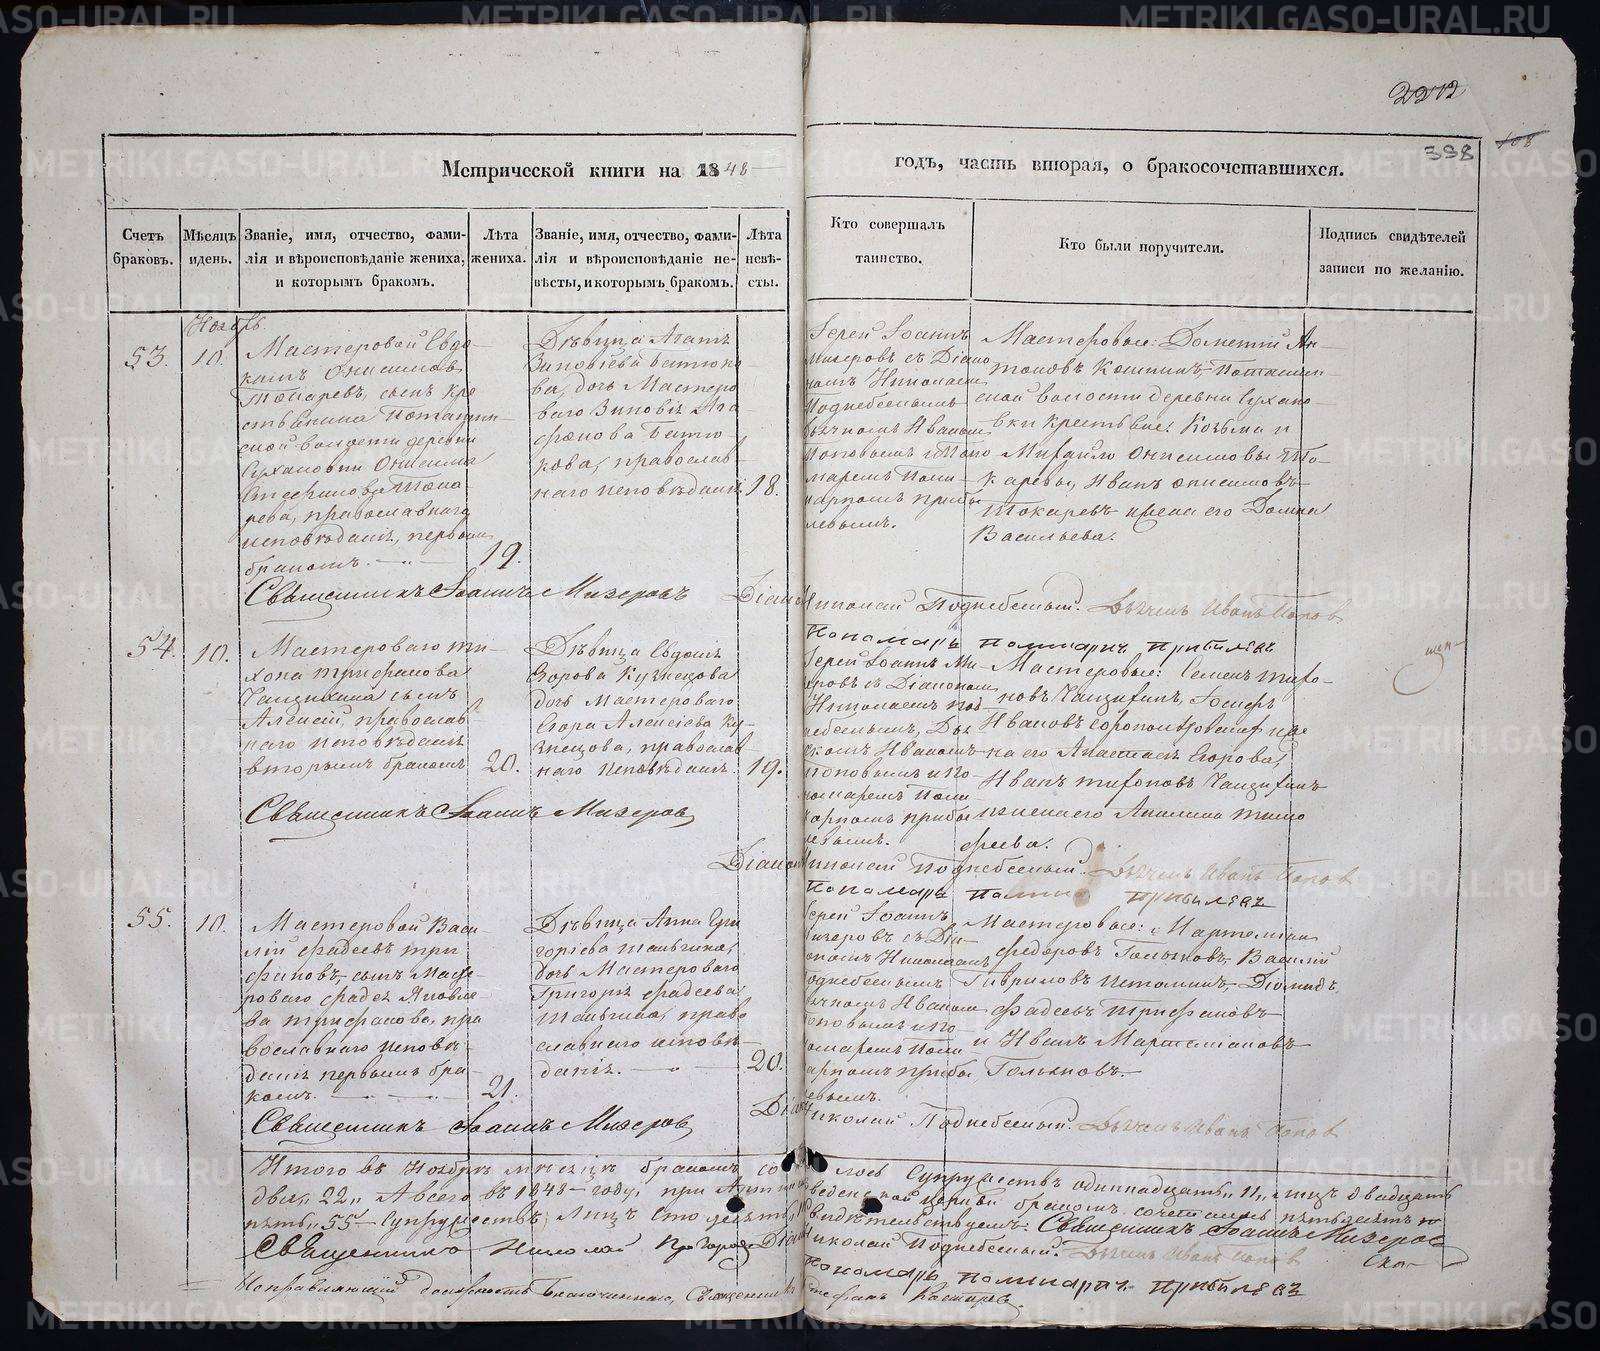 2212
398
108
Метрической книги на 1848
годъ, часть вторая, о бракосочетавшихся.
Счетъ браковъ.
Мѣсяцъ и день.
Званіе, имя, отчество, фами-
лія и вѣроисповѣданіе жениха,
и которымъ бракомъ.
Лѣта
жениха.
Званіе, имя, отчество, фами-
лія и вѣроисповѣданіе не-
вѣсты, и которымъ бракомъ.
Лѣта
невѣ-
сты.
Кто совершалъ
таинство.
Кто были поручители.
Подпись свидѣтелей
записи по желанію.
Ноябрь
53.
10.
Мастеровой Евдо-
кимъ Онисимовъ
Токаревъ, сынъ кре
стьянина Поташин-
ской волости деревни
Сухановки Онисима
Стефанова Тока-
рева, православнаго
исповѣданія, первымъ
бракомъ.
19.
Дѣвица Агатъ
Зиновіева Батюко-
ва, дочь Мастеро
ваго Зиновія Ага
фонова Батю
кова, православ-
наго исповѣданія.
18.
Іерей Іоаннъ
Мизеровъ съ Діако
номъ Николаемъ
Поднебеснымъ
дьячкомъ Иваномъ
Поповымъ и Поно
маремъ Поли-
карпомъ Прибы
левымъ.
Мастеровые: Дометій Ан-
тоновъ Кошкинъ, Поташин-
ской волости деревни Сухано-
вки крестьяне: Козьма и
Михайло Онисимовы То-
каревы, Иванъ Онисимовъ
Токаревъ и жена его Домна
Васильева.
Священникъ Іоаннъ Мизеровъ Діаконъ Николай Поднебесный. Дьячекъ Иванъ Попов
Пономарь Поликарпъ Прибылевъ
54.
10.
Мастероваго Ти-
хона Трифанова
Чандихина сынъ
Алексій, православ
наго исповѣданія
вторымъ бракомъ
20.
Дѣвица Евдокія
Егорова Кузнецова
дочь Мастероваго
Егора Алексіева Ку-
знецова, православ-
наго исповѣданія.
19.
Іерей Іоаннъ Ми-
зеровъ съ Діакономъ
Николаемъ Под
небеснымъ, Дья
чкомъ Иваномъ
Поповымъ и По-
номаремъ Поли
карпомъ Прибы
левымъ.
Мастеровые: Семенъ Тихо-
новъ Чандихинъ, Іосифъ
на его Анастасія Егорова,
Иванъ Тихоновъ Чандихинъ
и жена его Акилина Тимо
фіева.
Священникъ Іоаннъ Мизеров
Діаконъ Николай Поднебесный. Дьячекъ Иванъ Попов
Пономарь Прибылевъ
55.
10.
Мастеровой Васи-
лій Фадеевъ Три
фановъ, сынъ Масте
роваго Фадея Яковле-
ва Трифанова, пра
вославнаго исповѣ-
данія первымъ бра-
комъ.
21.
Дѣвица Анна Гри
горіева
дочь Мастероваго
Григорія Фадеева
право
славнаго исповѣ-
данія.
20.
Іерей Іоаннъ
Мизеровъ съ Діа-
кономъ Николаемъ
Поднебеснымъ
дьячкомъ Иваномъ
Поповымъ и По-
номаремъ Поли
карпомъ Прибы
левымъ.
Мастеровые: Мартемьян
Федоровъ Гольяновъ, Василій
Гавриловъ Истоминъ, Діомидъ
Фадеевъ Трифановъ
и Иванъ Мартеміановъ
Гольяновъ.
Священникъ Іоаннъ Мизеров Діаконъ Николай Поднебесный. Дьячекъ Иванъ Попов
Итого въ Ноябрѣ мѣсяцѣ бракомъ сочеталось Супружествъ одиннадцать „11„ лицъ двадцать
два „22„ А всего въ 1848 году, при Введенской церкви бракомъ сочеталось пятьдесятъ
пять „55„ Супружествъ, Лицъ сто десять Свидѣтельствуемъ: Священникъ Іоаннъ Мизеров
Священникъ Николай Діаконъ Николай Поднебесный. Дьячекъ Иванъ Попов
Пономарь Поликарпъ Прибылевъ
Исправляющій должность Благочиннаго, Священникъ Стефанъ
METRIKI.GASO-URAL.RU